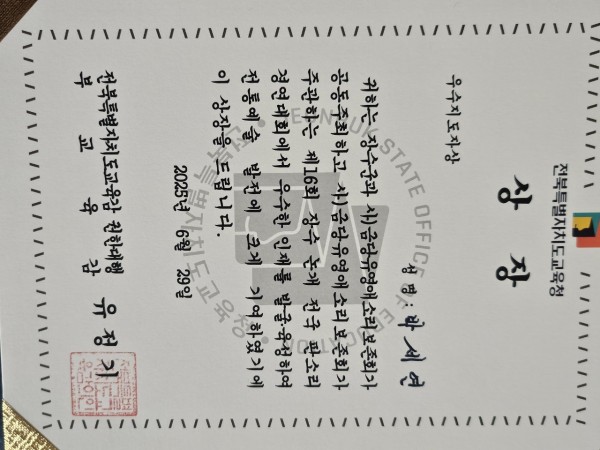 전북특별자치도교육청
상 장
우수지도자상
성 명 : 박 세 연
귀하는 장수군과 사)금당유영애소리보존회가
공동주최하고 사)금당유영애소리보존회가
주관하는 제16회 장수 논개 전국 판소리
경연대회에서 우수한 인재를 발굴·육성하여
전통예술 발전에 크게 기여하였기에
이 상장을 드립니다.
2025년 6월 29일
전북특별자치도교육감 권한대행
부 교 육 감 유 정 기
JEONBUK STATE OFFICE OF EDUCATION
전북특별자치도교육청